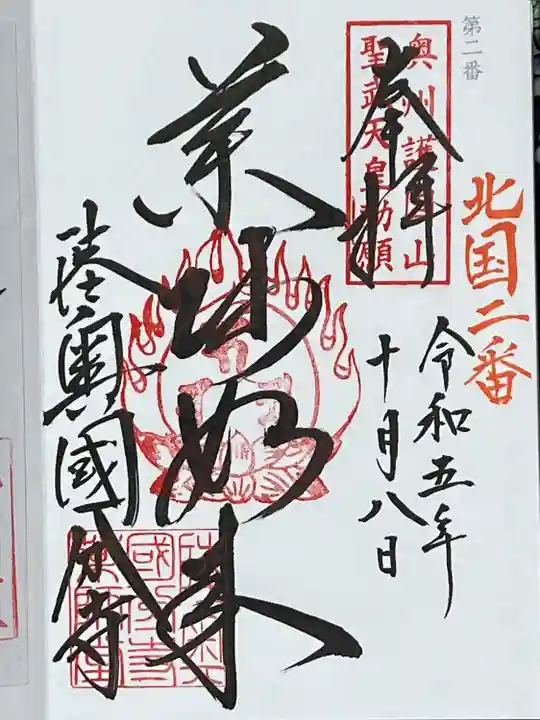 第二番
北国二番
奉拝
奥州護国山
聖武天皇勅願
令和五年
十月八日
薬師如来
陸奥國分寺